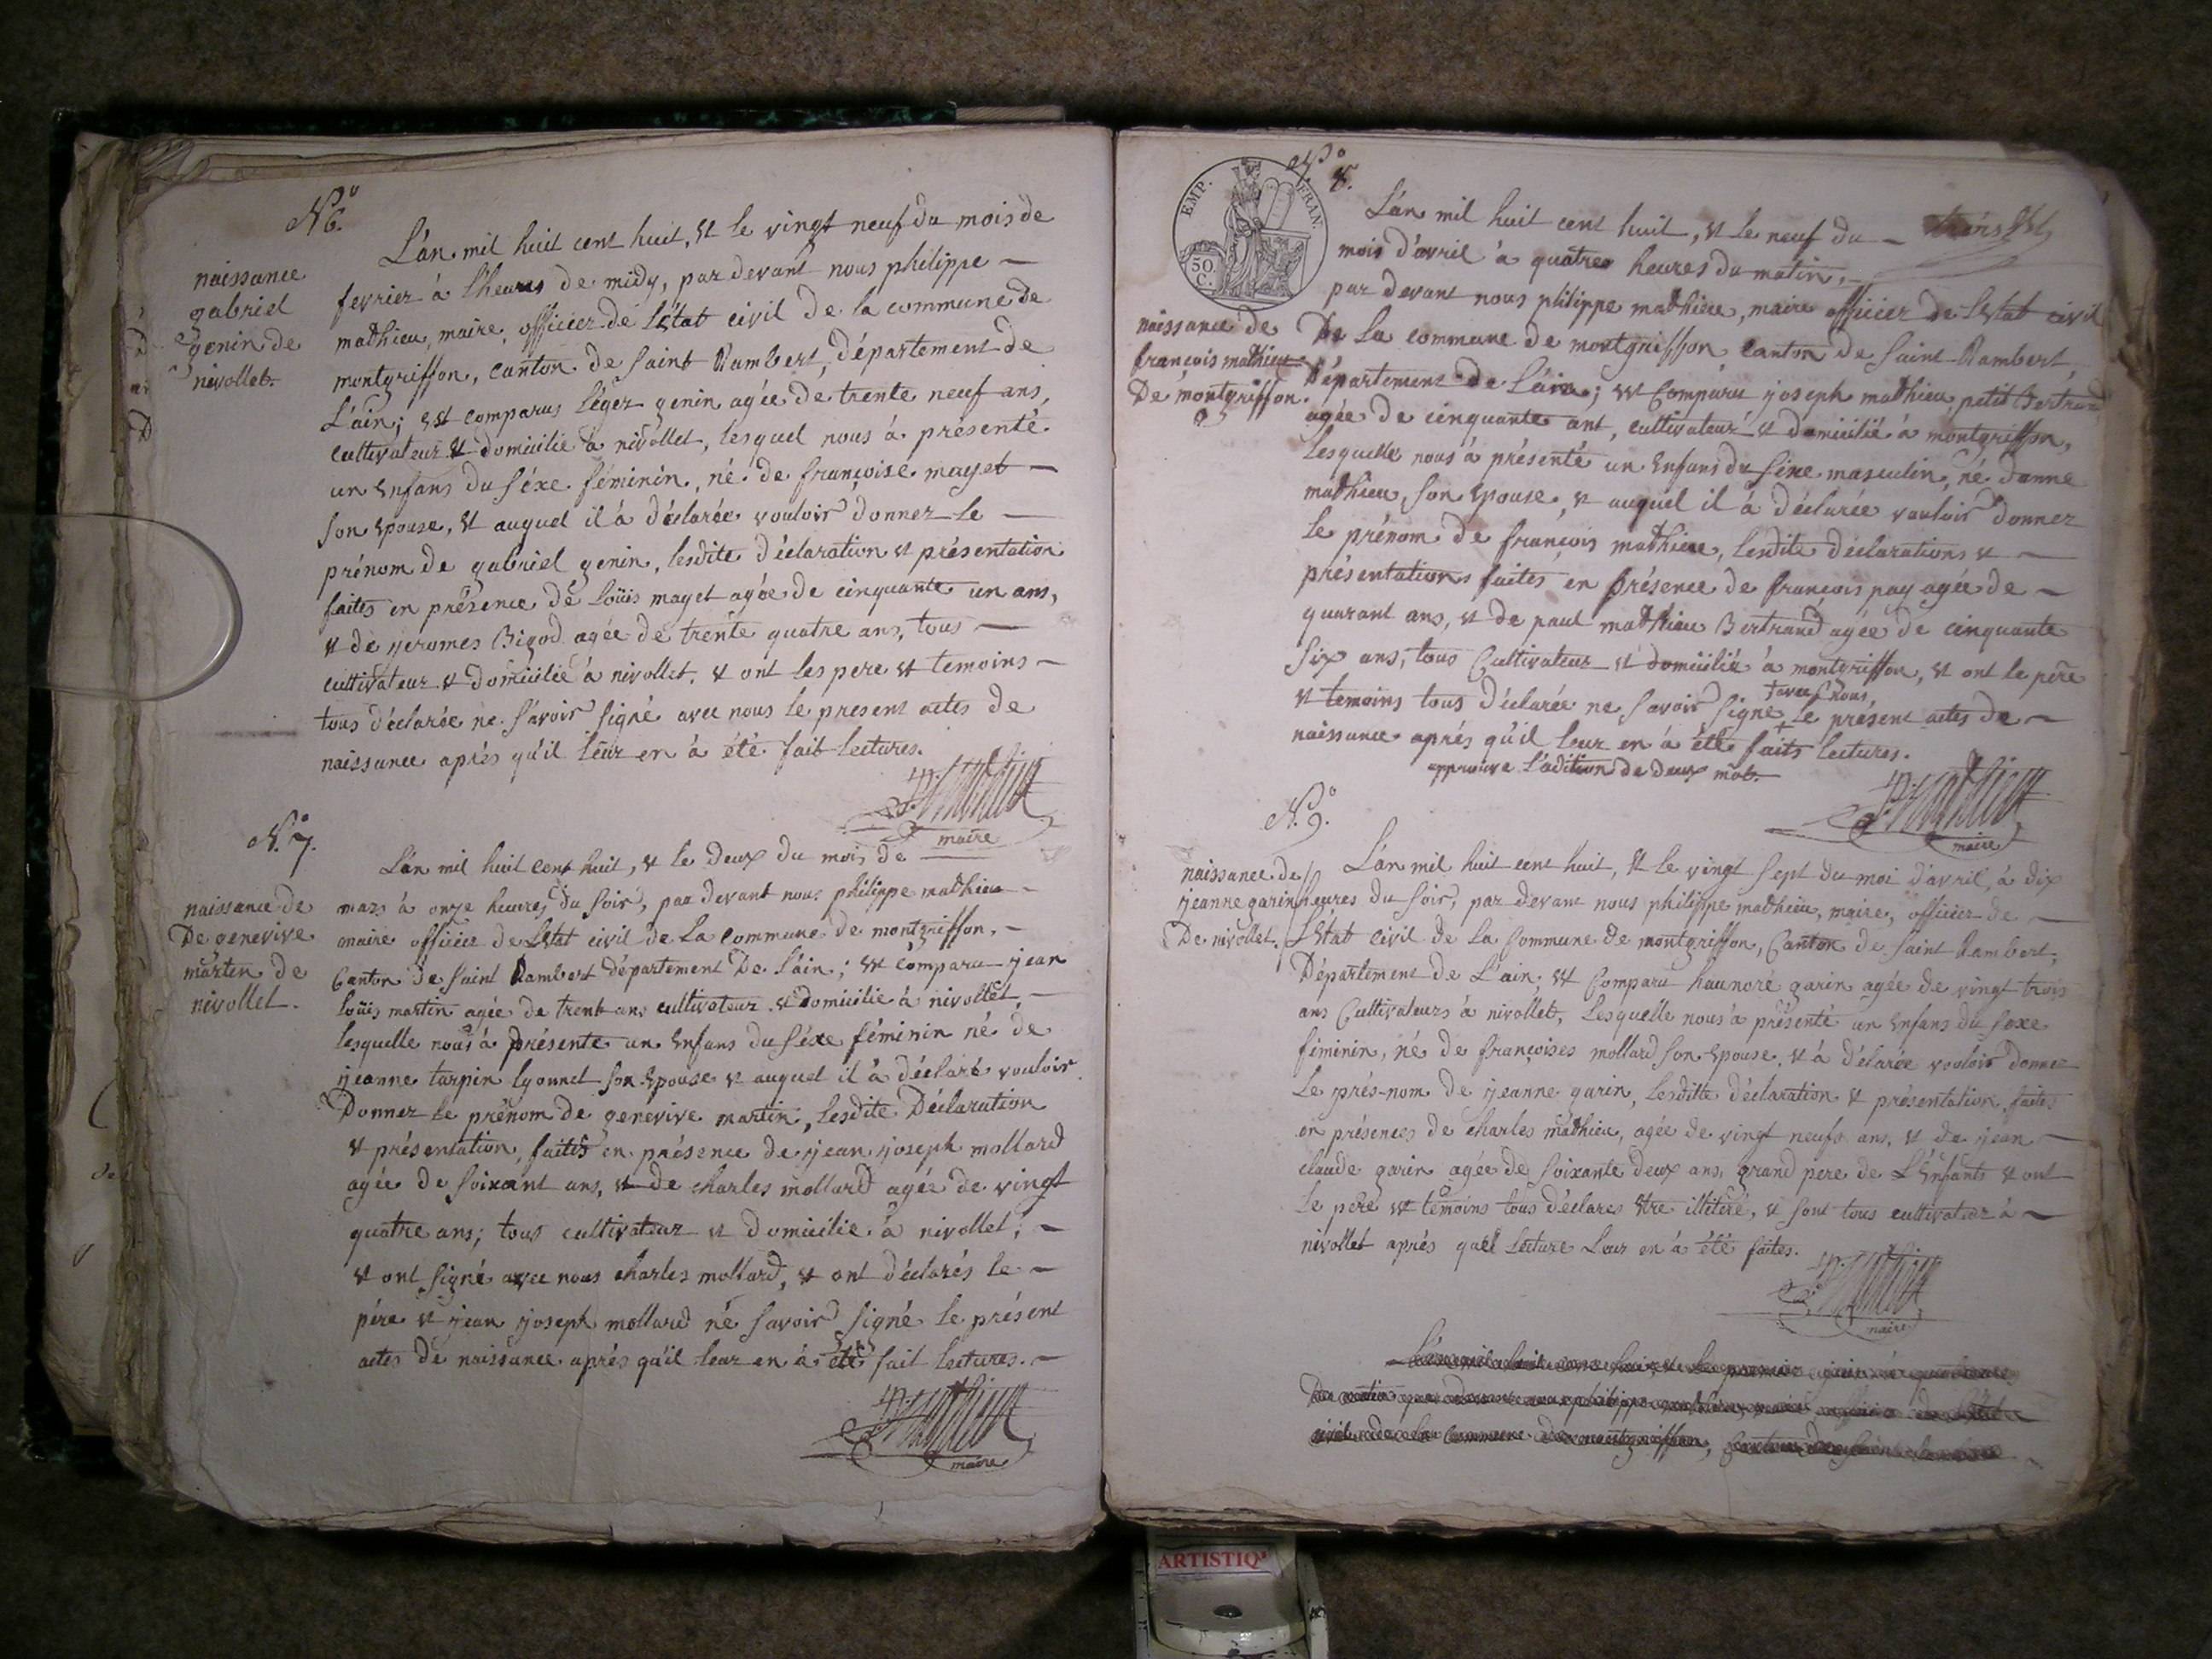 N.º 6.
naissance
gabriel
genin de
nivollet.
L'án mil huit cent huit, et le vingt neuf du mois de
fevrier à l'heures de midy, par devant nous philippe
mathieu, maire, officier de l'état civil de la commune de
montgriffon, canton de saint Rambert, département de
L'ain; est comparus Léger genin agée de trente neuf ans,
cultivateur et domicilié à nivollet, lesquel nous à présenté
un Enfans du séxe féminin, né de françoise mayet
son epouse, et auquel il à déclarée vouloir donner le
prénom de gabriel genin, lesdite déclaration et présentation
faites en présence de Loüis mayet agée de cinquante un ans,
et de jeromes Bigod agée de trente quatre ans, tous
cultivateur et domicilié à nivollet, et ont les pere et temoins
tous déclarée ne savoir signé avec nous le present actes de
naissance aprés qu'il leur en à été fait lectures.
P. Mathieu
maire
N.º 7.
naissance de
De genevive
martin de
nivollet.
L'án mil huit cent huit, et le deux du mois de
mars à onze heures du soir, par devant nous philippe mathieu
maire officier de L'Etat civil de La commune de montgriffon,
Canton de saint Rambert département De L'áin; est comparu jean
loüis martin agée de trent ans cultivateur et domicilié à nivollet,
lesquelle nous à présente un Enfans du séxe féminin né de
jeanne tarpin lyonnet son Epouse et auquel il à déclaré vouloir
Donner le prénom de genevive martin, lesdite Déclaration
et présentation, faites en présence de jean joseph mollard
agée de soixant ans, et de charles mollard agée de vingt
quatre ans; tous cultivateur et domicilié à nivollet,
et ont signé avec nous charles mollard, et ont déclarés le
pére et jean joseph mollard né savoir signé le présent
actes de naissance aprés qu'il leur en à été fait lectures.
P. Mathieu
maire
EMP. FRAN.
50.
C.
N.º 8.
L'án mil huit cent huit, et le neuf du
mois d'avril à quatre heures du matin,
par devant nous philippe mathieu, maire officier de l'Etat civil
naissance de
françois mathieu
De montgriffon.
De La commune de montgriffon canton de saint Rambert,
département de L'áin; est Comparu joseph mathieu petit Bertrand
agée de cinquante ant, cultivateur et domicilié à montgriffon,
lesquelle nous à présenté un Enfans du sexe masculin, né danne
mathieu, son epouse, et auquel il à déclarée vouloir donner
le prénom de françois mathieu, lesdite déclarations et
présentations faites en présence de françois pay agée de
quarant ans, et de paul mathieu Bertrand agée de cinquante
six ans, tous Cultivateur et domicilié à montgriffon, et ont le pére
et temoins tous déclarée ne savoir signé + le présent actes de
+ avec nous,
naissance aprés qu'il leur en à été faits lectures.
approuve l'adition de deux mot.
P. Mathieu
maire
N.º 9.
naissance de
jeanne garin
De nivollet.
L'án mil huit cent huit, et le vingt sept du moi d'avril, à dix
heures du soir, par devant nous philippe mathieu, maire, officier de
L'Etat civil de La Commune de montgriffon, Canton de saint Rambert,
Département de L'ain; est Comparu haunoré garin agée de vingt trois
ans Cultivateurs à nivollet, Lesquelle nous à présenté un Enfans du sexe
féminin, né de françoises mollard son Epouse, et à déclarée vouloir donner
Le prés-nom de jeanne garin, lesditte déclaration et présentation, faites
en présences de charles mathieu, agée de vingt neufs ans, et de jean
claude garin agée de soixante deux ans, grand pere de L'Enfants et ont
le pere et temoins tous déclares être illiteré, et sont tous cultivateur à
nivollet aprés quel Lecture Leur en à été faites.
P. Mathieu
maire
ARTISTIQ